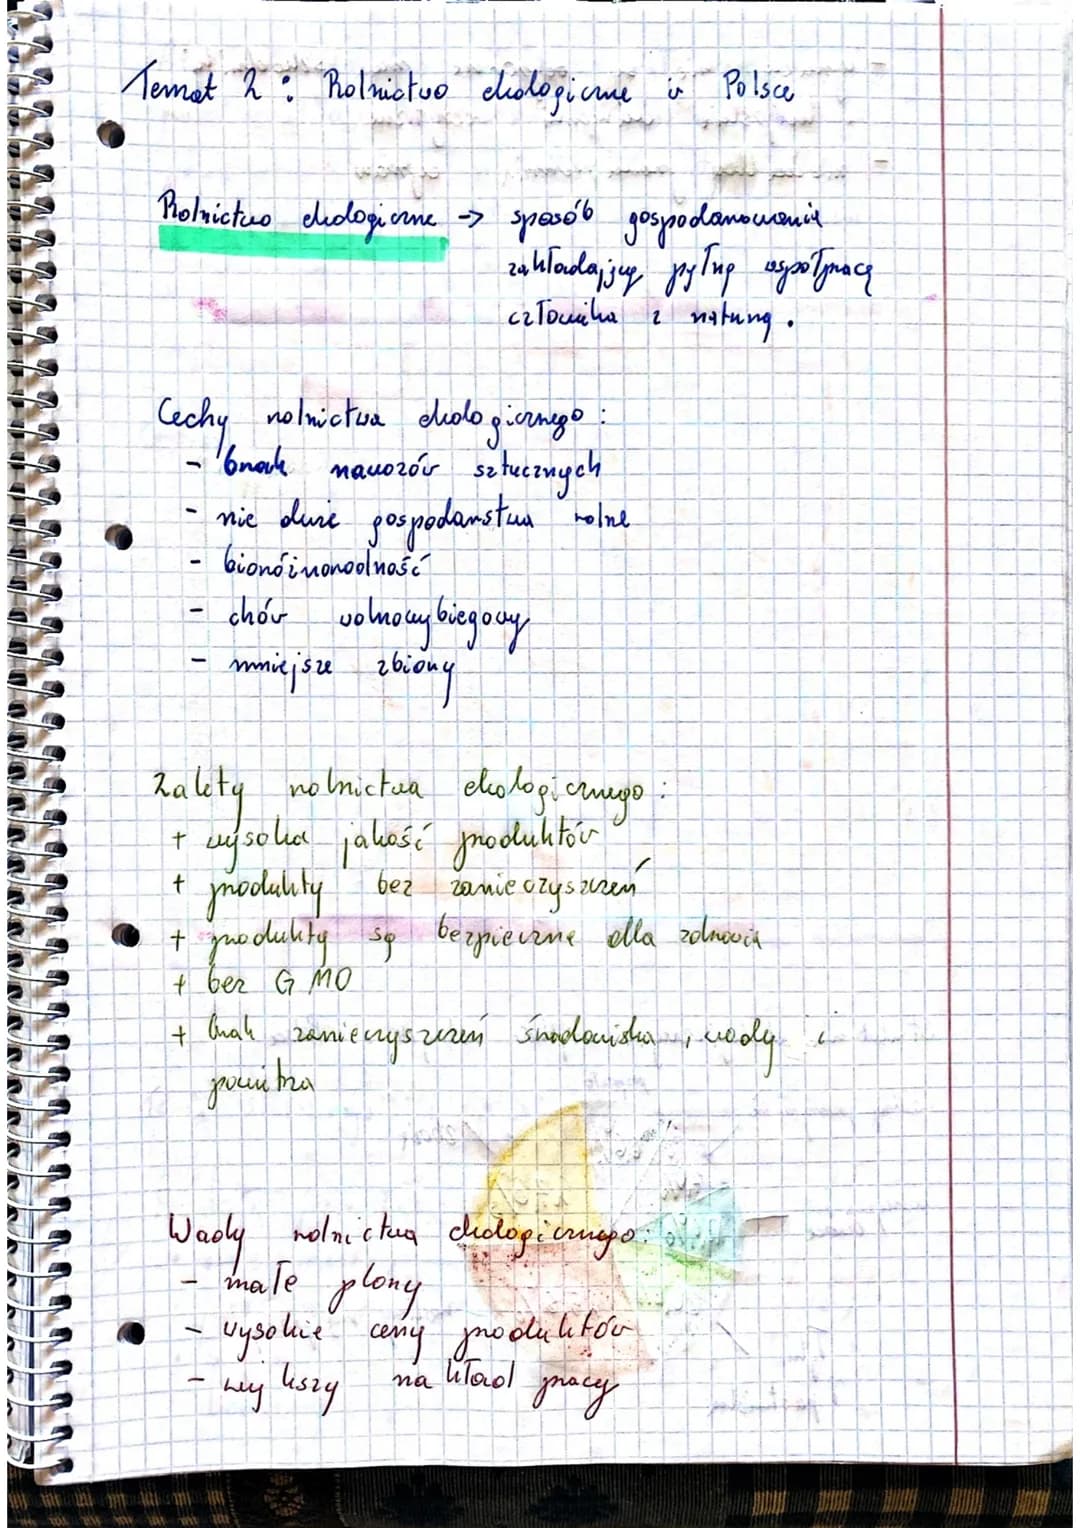 Temat 2: Rolnictwo ekologiczne w Polsce
Rolnictwo ekologiczne → sposób gospodarowania
zakładający pełną współpracę
człowieka z naturą.
Cechy rolnictwa ekologicznego:
- brak nawozów sztucznych
- nie duże gospodarstwa rolne
- bioróżnorodność
- chów wolnowybiegowy
- mniejsze zbiory
Zalety rolnictwa ekologicznego:
+ wysoka jakość produktów
+ produkty bez zanieczyszczeń
+ produkty są bezpieczne dla zdrowia
+ bez GMO
+ brak zanieczyszczeń środowiska, wody i
powietrza
Wady rolnictwa ekologicznego:
- małe plony
- wysokie ceny produktów
- większy nakład pracy